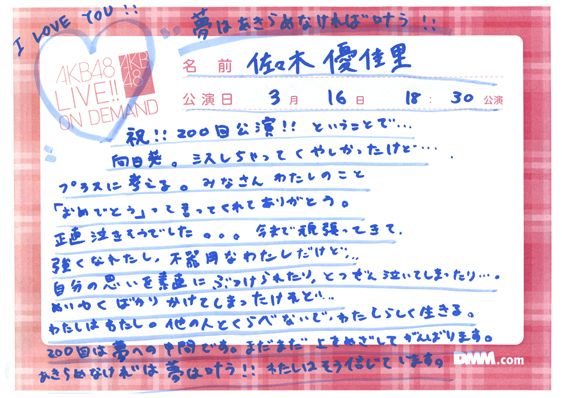 I LOVE YOU!!
夢はあきらめなければ叶う!!
AKB48
LIVE!!
ON DEMAND
AKB
48
名前 佐々木 優佳里
公演日 3月 16日 18:30公演
祝!!200回公演!!ということで…
向日葵。ミスしちゃってくやしかったけど…
プラスに考える。みなさんわたしのこと
「おめでとう」って言ってくれてありがとう。
正直泣きそうでした。。。今まで頑張ってきて
強くなれたし、不器用なわたしだけど…
自分の思いを素直にぶつけられたり、とつぜん泣いてしまったり…。
めいわくばかりかけてしまったけれど…
わたしはわたし。他の人とくらべないで、わたしらしく生きる。
200回は夢への中間です。まだまだ上をめざしてがんばります。
DMM.com
あきらめなければ夢は叶う!!わたしはそう信じています。